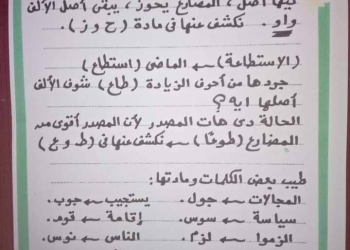 فيها أصل، المضارع يحوز، يبقى أصل الألف
واو. نكشف عنها في مادة (ح و ز).
(الإستطاعة) ← الماضي (استطاع)
جردها من أحرف الزيادة (طاع) شوف الألف
أصلها ايه؟
الحالة دى هات المصدر لأن المصدر أقوى من
المضارع (طوعًا) ← نكشف عنها في (ط و ع)
طيب بعض الكلمات ومادتها:
المجالات ← جول. يستجيب ← جوب.
سياسة ← سوس. إقامة ← قوم.
الزموا ← لزم. الناس ← نوس.